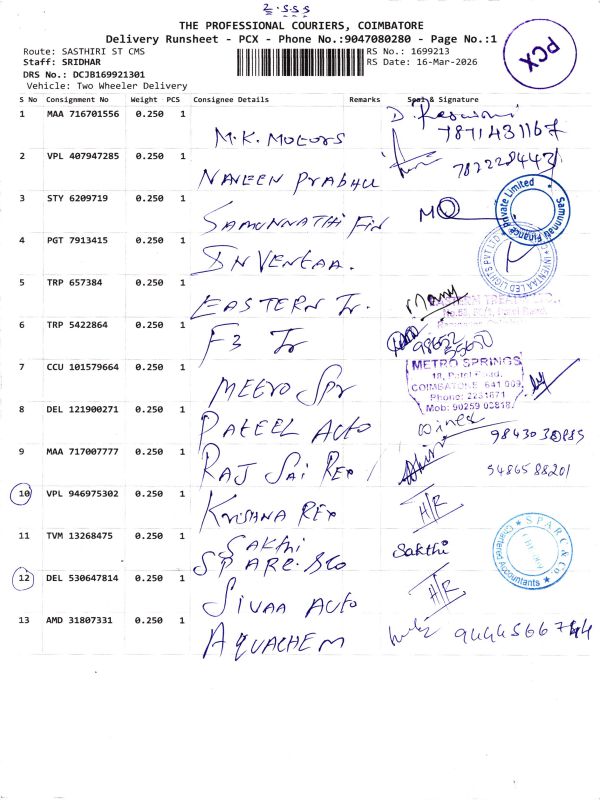 2.S.S.S
THE PROFESSIONAL COURIERS, COIMBATORE
Delivery Runsheet - PCX - Phone No.:9047080280 - Page No.:1
PCX
Route: SASTHIRI ST CMS
RS No.: 1699213
Staff: SRIDHAR
RS Date: 16-Mar-2026
DRS No.: DCJB169921301
Vehicle: Two Wheeler Delivery
S No Consignment No Weight PCS Consignee Details Remarks Seal & Signature
1 MAA 716701556 0.250 1 M.K. MOTORS 7871431167
2 VPL 407947285 0.250 1 NAVEEN PRABHU
3 STY 6209719 0.250 1 SAMUNNATHI Fin
Samunnati Finance Private Limited
4 PGT 7913415 0.250 1 INVENTAA.
INVENTAA LED LIGHTS PVT LTD
5 TRP 657384 0.250 1 EASTERN Tr.
6 TRP 5422864 0.250 1 F3 Tr 98652
7 CCU 101579664 0.250 1 METRO SPr
METRO SPRINGS
18, Patel Road,
COIMBATORE - 641 009
Phone: 2231671
Mob: 90259 03818
8 DEL 121900271 0.250 1 PATEEL AUTO
9 MAA 717007777 0.250 1 RAJ SAI REX 9486588201
10 VPL 946975302 0.250 1 KRISHNA REX H/R
11 TVM 13268475 0.250 1 SAKTHI Sakthi
SPARC. &CO
SPARC & Co.
Chartered Accountants
12 DEL 530647814 0.250 1 SIVAA AUTO H/R
13 AMD 31807331 0.250 1 AQUACHEM